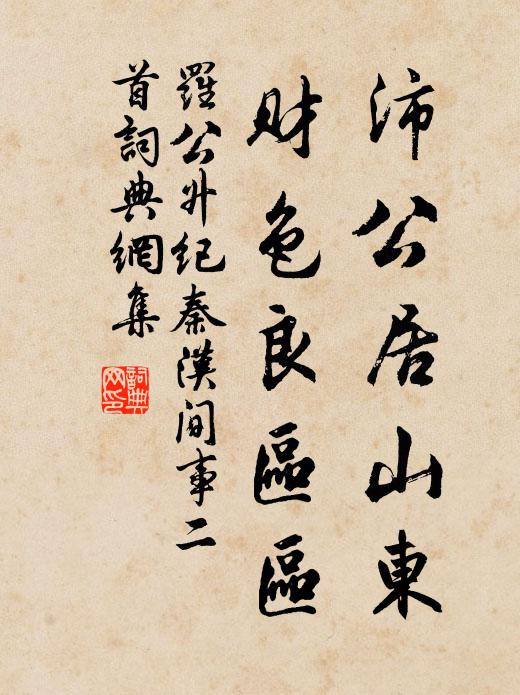 沛公居山東
財色良區區
羅公升紀秦漢間事二
首詞典網集
詞典
网印